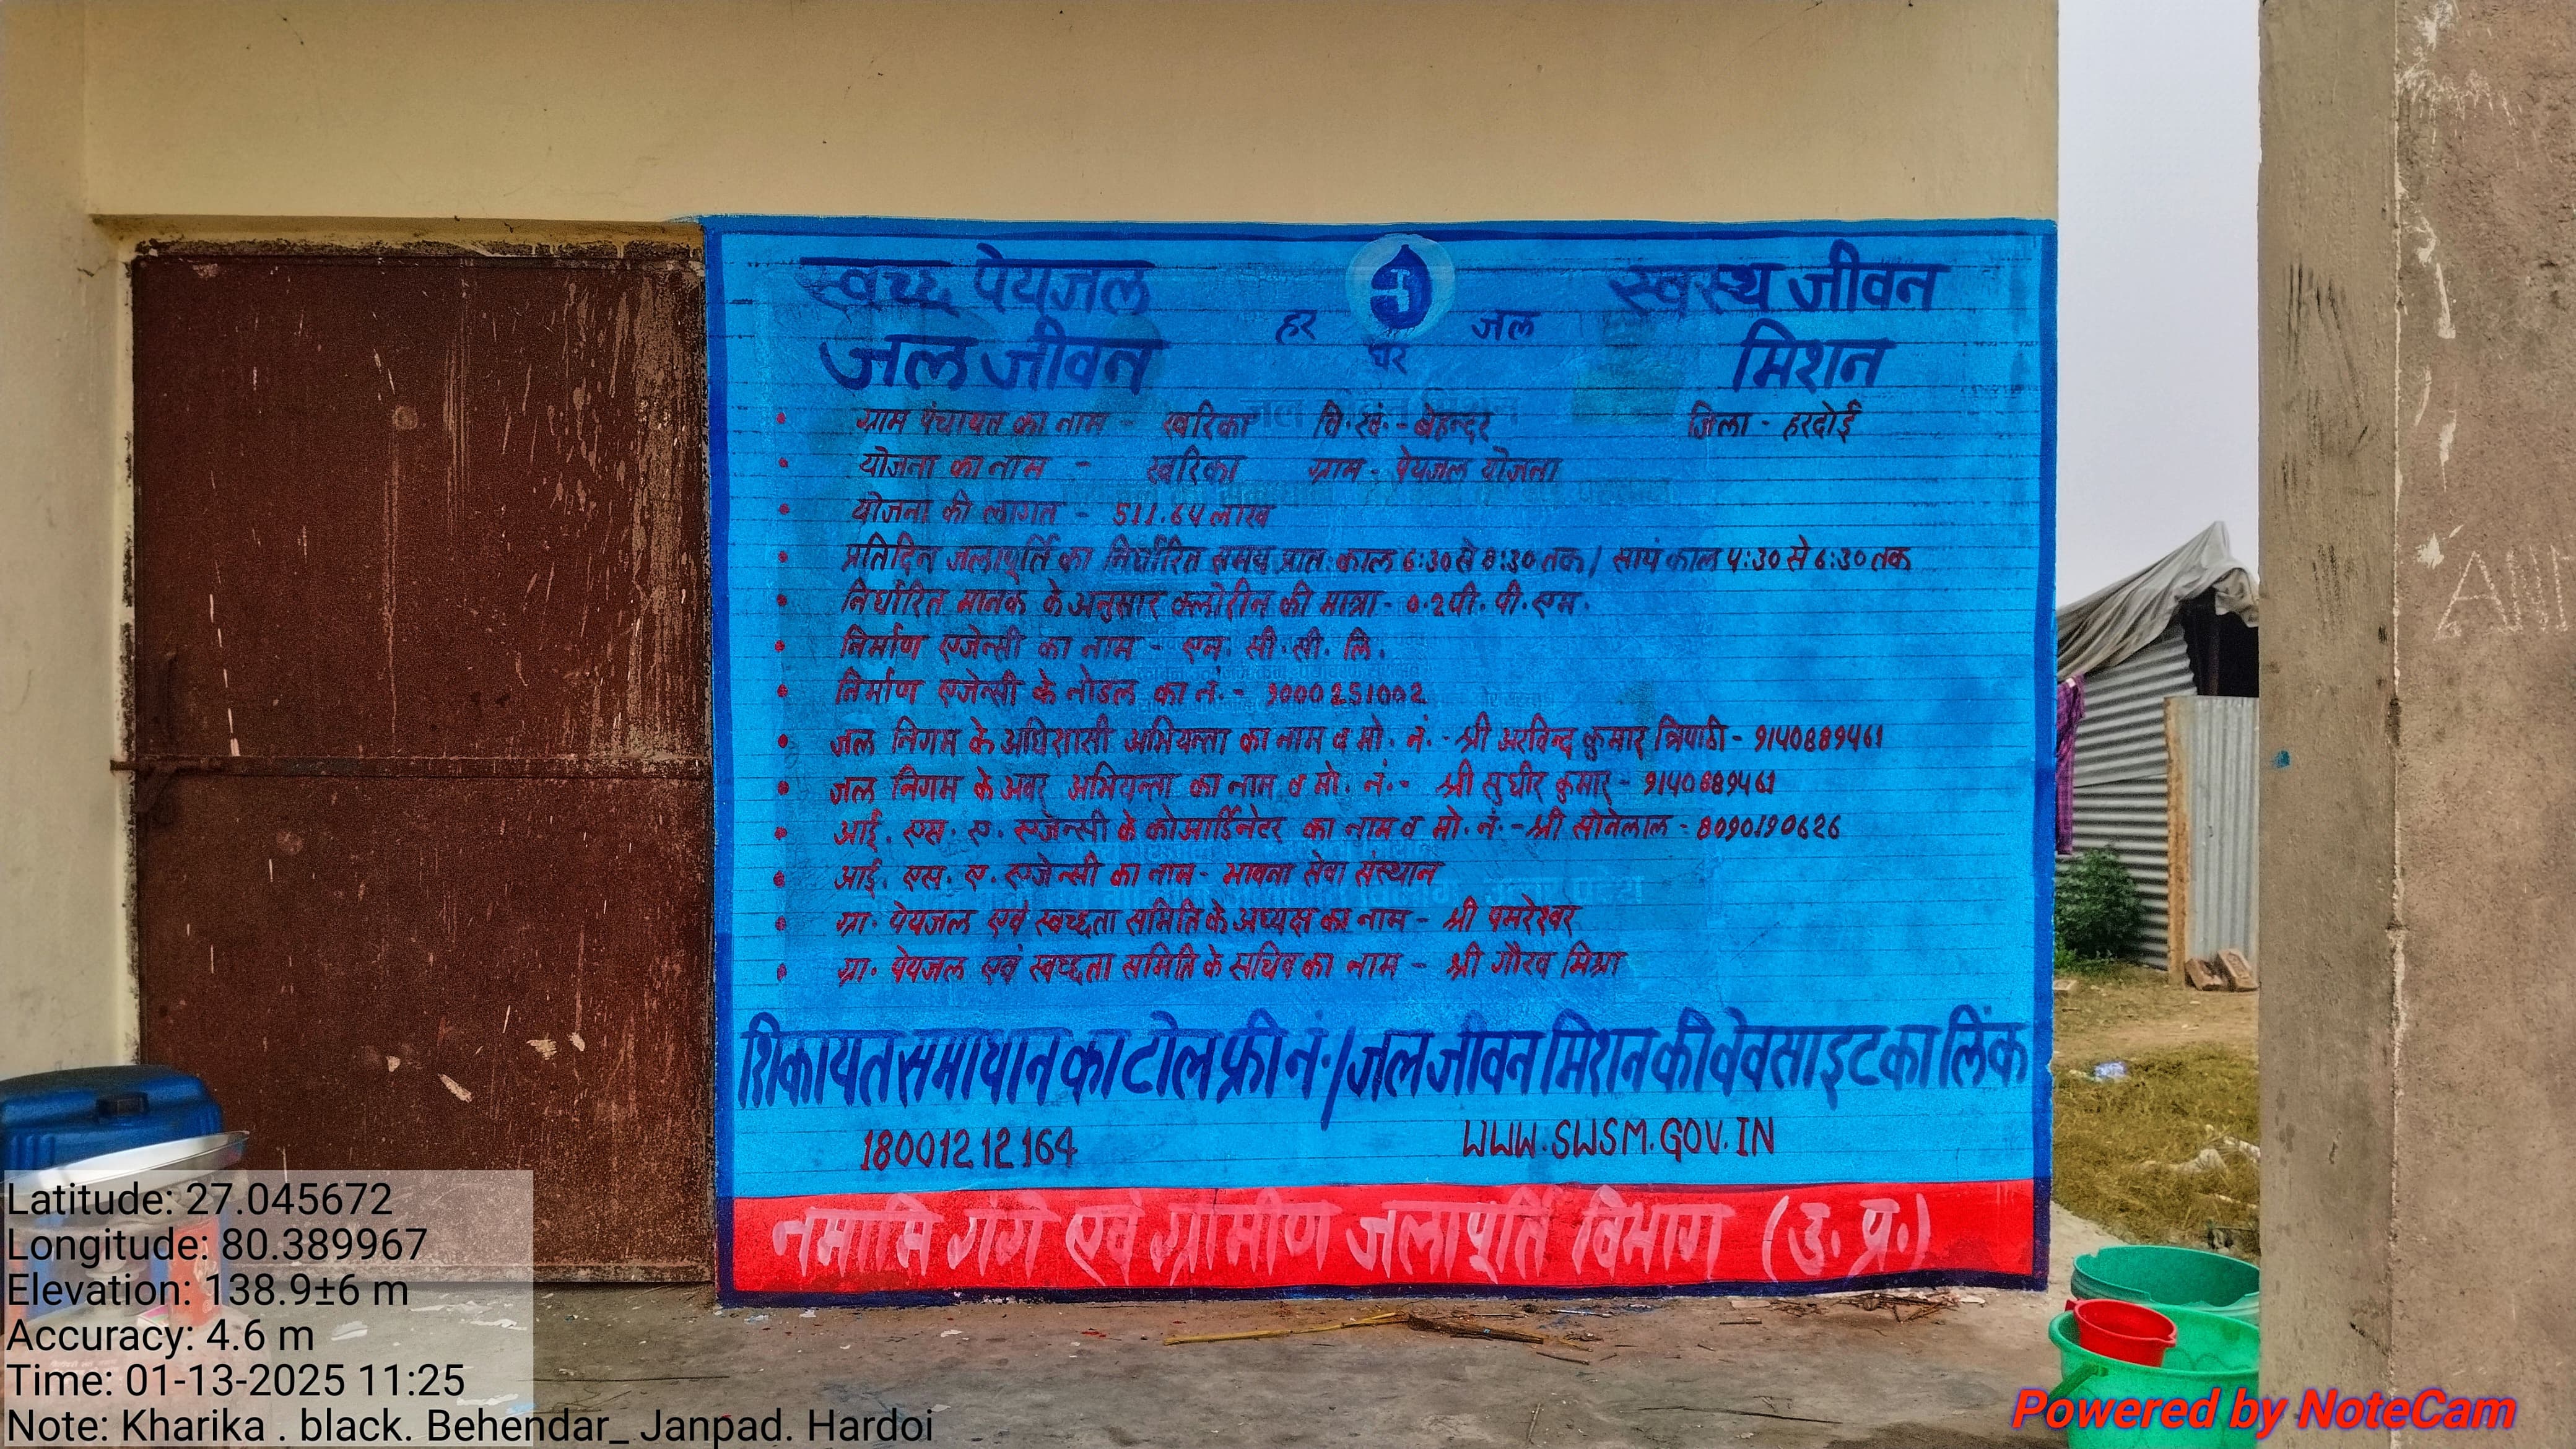 स्वच्छ पेयजल स्वस्थ जीवन
हर घर जल
जल जीवन मिशन
ग्राम पंचायत का नाम - खरिका वि.खं. - बेहन्दर जिला - हरदोई
योजना का नाम - खरिका ग्राम - पेयजल योजना
योजना की लागत - 511.64 लाख
प्रतिदिन जलापूर्ति का निर्धारित समय प्रातः काल 6:30 से 8:30 तक / सायं काल 4:30 से 6:30 तक
निर्धारित मानक के अनुसार क्लोरीन की मात्रा - 0.2 पी. पी. एम.
निर्माण एजेन्सी का नाम - एन. सी. सी. लि.
निर्माण एजेन्सी के नोडल का नं. - 9000251002
जल निगम के अधिशासी अभियन्ता का नाम व मो. नं. - श्री अरविन्द कुमार त्रिपाठी - 9140889461
जल निगम के अवर अभियन्ता का नाम व मो. नं. - श्री सुधीर कुमार - 9140889461
आई. एस. ए. एजेन्सी के कोआर्डिनेटर का नाम व मो. नं. - श्री सोनेलाल - 8090190626
आई. एस. ए. एजेन्सी का नाम - भावना सेवा संस्थान
ग्रा. पेयजल एवं स्वच्छता समिति के अध्यक्ष का नाम - श्री पमरेश्वर
ग्रा. पेयजल एवं स्वच्छता समिति के सचिव का नाम - श्री गौरव मिश्रा
शिकायत समाधान का टोल फ्री नं. / जल जीवन मिशन की वेवसाइट का लिंक
18001212164 WWW.SWSM.GOV.IN
नमामि गंगे एवं ग्रामीण जलापूर्ति विभाग (उ. प्र.)
Latitude: 27.045672
Longitude: 80.389967
Elevation: 138.9±6 m
Accuracy: 4.6 m
Time: 01-13-2025 11:25
Note: Kharika . black. Behendar_ Janpad. Hardoi
Powered by NoteCam